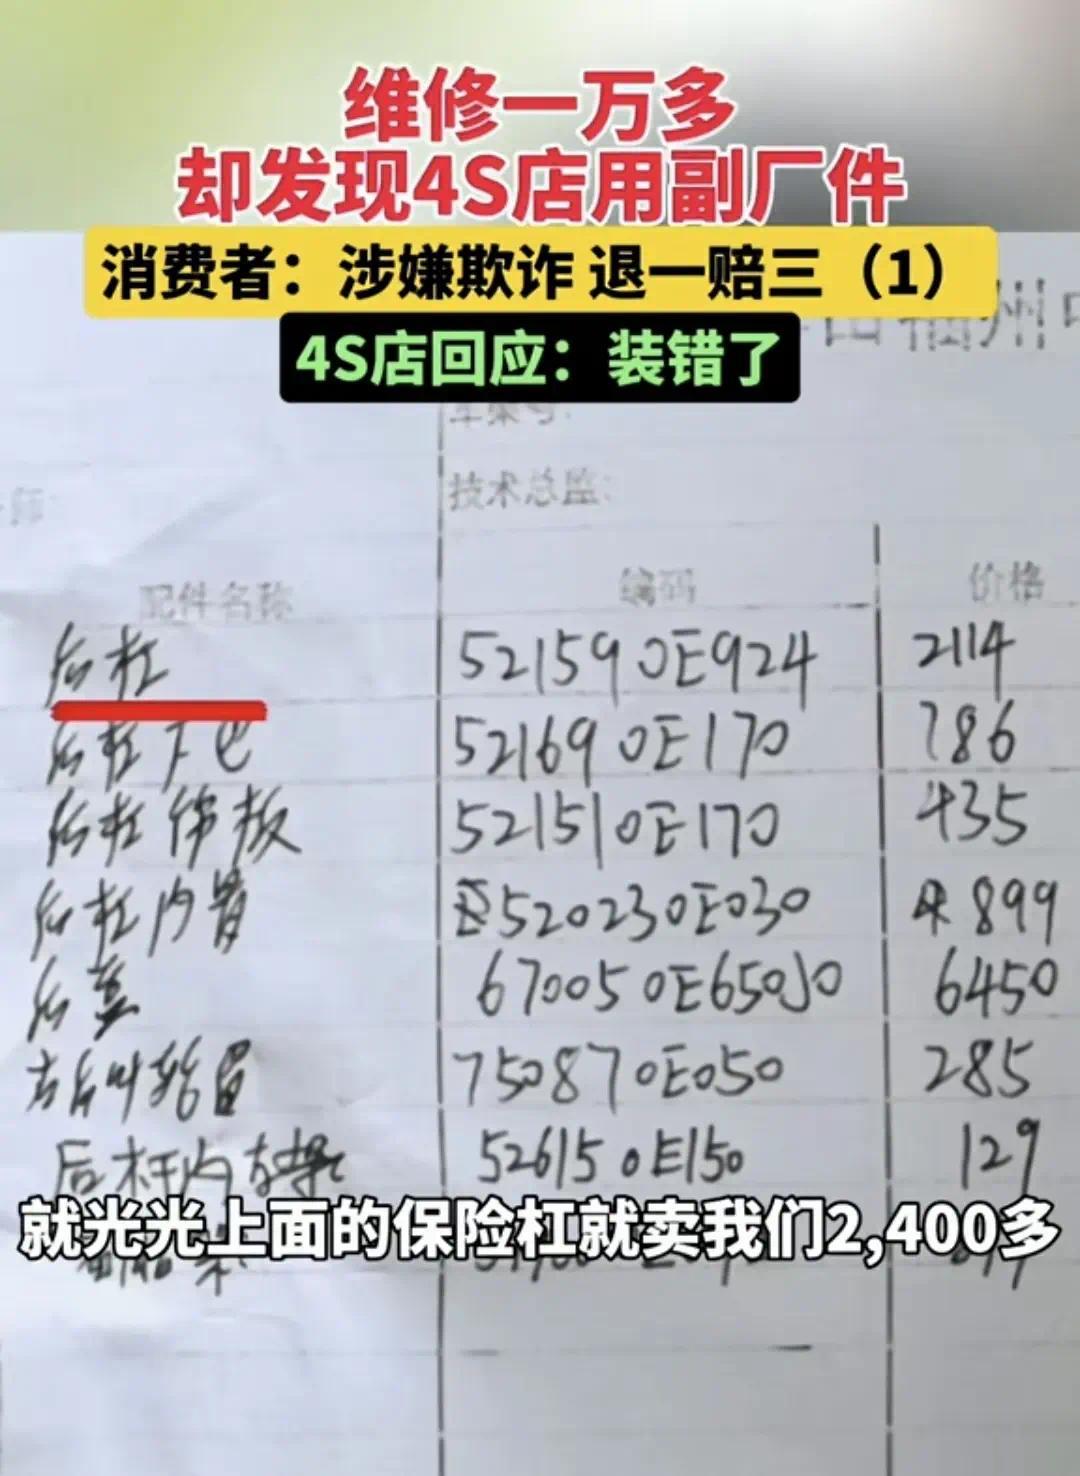 维修一万多
却发现4S店用副厂件
消费者：涉嫌欺诈 退一赔三（1）
4S店回应：装错了
车架号：
技术总监：
配件名称 编码 价格
后杠 52159 0E924 2114
后杠下巴 52169 0E170 786
后杠饰板 52151 0E170 435
后杠内骨 52023 0E030 899
后盖 67005 0E650 6450
75087 0E050 285
后杠内支架 52615 0E150 129
就光光上面的保险杠就卖我们2,400多